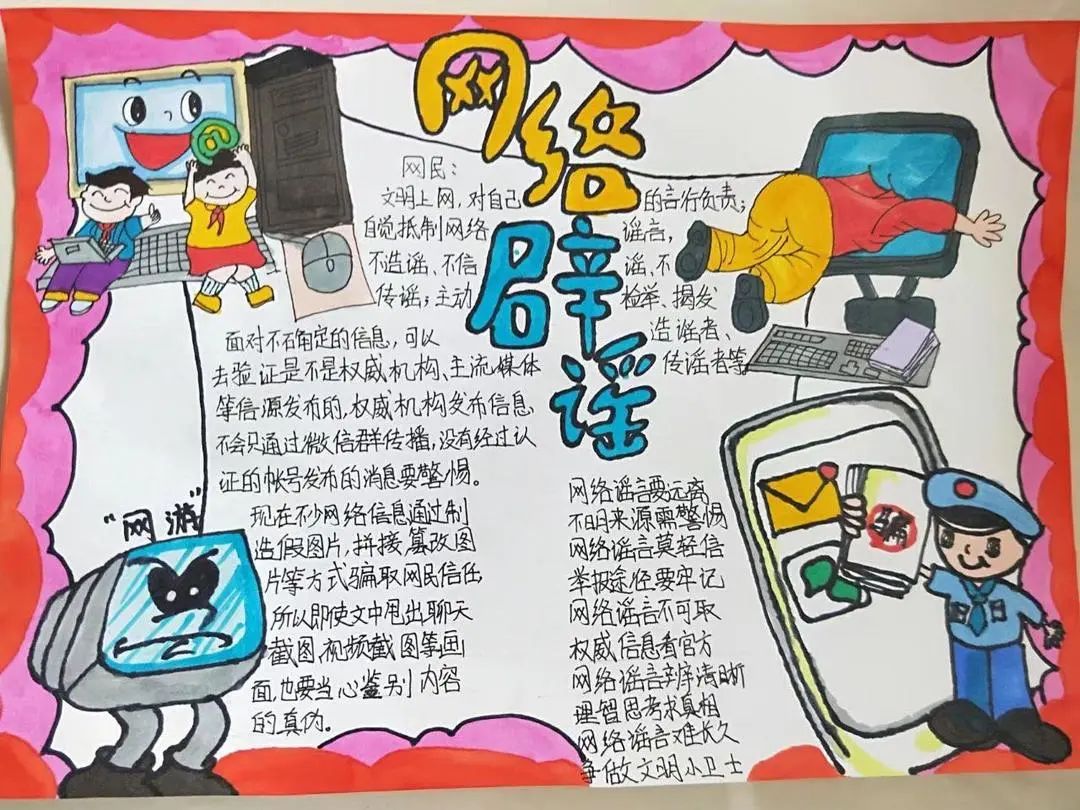 网络辟谣
网民：
文明上网，对自己的言行负责；
自觉抵制网络谣言，
不造谣、不信谣、不
传谣；主动检举、揭发
造谣者、
传谣者等。
面对不确定的信息，可以
去验证是不是权威机构、主流媒体
等信源发布的，权威机构发布信息
不会只通过微信群传播，没有经过认
证的帐号发布的消息要警惕。
现在不少网络信息通过制
造假图片，拼接，篡改图
片等方式骗取网民信任，
所以即使文中甩出聊天
截图、视频截图等画
面，也要当心鉴别内容
的真伪。
"网游"
网络谣言要远离
不明来源需警惕
网络谣言莫轻信
举报途径要牢记
网络谣言不可取
权威信息看官方
网络谣言辨清晰
理智思考求真相
网络谣言难长久
争做文明小卫士
@
骗